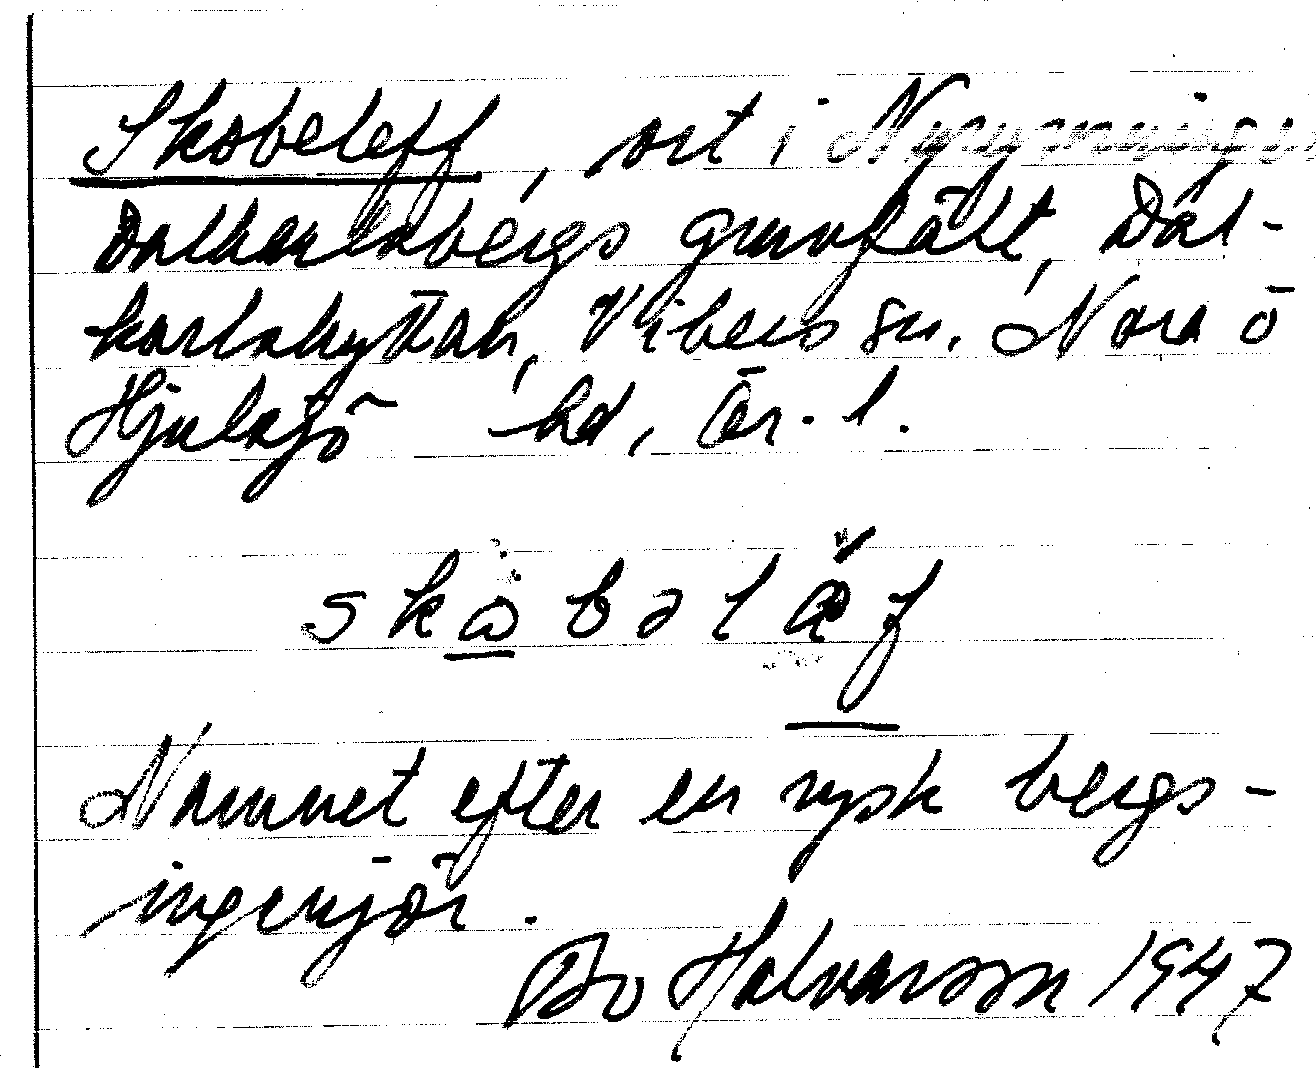 Skobeleff, ort i
Dalkarlsbergs gruvfält, Dal-
karlshyttan, Vikers sn. Nora o
Hjulsjö hd, Ör. l.
skåbəlæf
Namnet efter en rysk bergs-
ingenjör.
Bo Halvarsson 1947